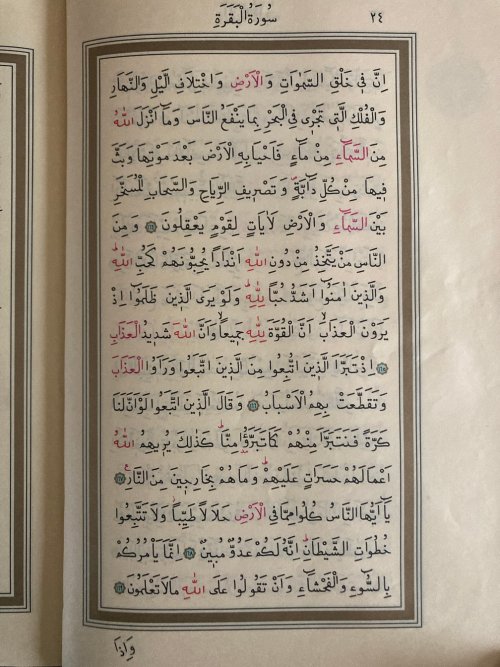 ٢٤ سُورَةُ الْبَقَرَةِ
اِنَّ فٖي خَلْقِ السَّمٰوَاتِ وَالْاَرْضِ وَاخْتِلَافِ الَّيْلِ وَالنَّهَارِ
وَالْفُلْكِ الَّتٖي تَجْرٖي فِي الْبَحْرِ بِمَا يَنْفَعُ النَّاسَ وَمَٓا اَنْزَلَ اللّٰهُ
مِنَ السَّمَٓاءِ مِنْ مَٓاءٍ فَاَحْيَا بِهِ الْاَرْضَ بَعْدَ مَوْتِهَا وَبَثَّ
فٖيهَا مِنْ كُلِّ دَٓابَّةٍ وَتَصْرٖيفِ الرِّيَاحِ وَالسَّحَابِ الْمُسَخَّرِ
بَيْنَ السَّمَٓاءِ وَالْاَرْضِ لَاٰيَاتٍ لِقَوْمٍ يَعْقِلُونَ ﴿١٦٤﴾ وَمِنَ
النَّاسِ مَنْ يَتَّخِذُ مِنْ دُونِ اللّٰهِ اَنْدَادًا يُحِبُّونَهُمْ كَحُبِّ اللّٰهِؕ
وَالَّذٖينَ اٰمَنُٓوا اَشَدُّ حُبًّا لِلّٰهِؕ وَلَوْ يَرَى الَّذٖينَ ظَلَمُٓوا اِذْ
يَرَوْنَ الْعَذَابَۙ اَنَّ الْقُوَّةَ لِلّٰهِ جَمٖيعًاۙ وَاَنَّ اللّٰهَ شَدٖيدُ الْعَذَابِ
﴿١٦٥﴾ اِذْ تَبَرَّاَ الَّذٖينَ اتُّبِعُوا مِنَ الَّذٖينَ اتَّبَعُوا وَرَاَوُا الْعَذَابَ
وَتَقَطَّعَتْ بِهِمُ الْاَسْبَابُ ﴿١٦٦﴾ وَقَالَ الَّذٖينَ اتَّبَعُوا لَوْ اَنَّ لَنَا
كَرَّةً فَنَتَبَرَّاَ مِنْهُمْ كَمَا تَبَرَّؤُ۫ا مِنَّاؕ كَذٰلِكَ يُرٖيهِمُ اللّٰهُ
اَعْمَالَهُمْ حَسَرَاتٍ عَلَيْهِمْؕ وَمَا هُمْ بِخَارِجٖينَ مِنَ النَّارِࣖ ﴿١٦٧﴾
يَٓا اَيُّهَا النَّاسُ كُلُوا مِمَّا فِي الْاَرْضِ حَلَالًا طَيِّبًاؗ وَلَا تَتَّبِعُوا
خُطُوَاتِ الشَّيْطَانِؕ اِنَّهُ لَكُمْ عَدُوٌّ مُبٖينٌ ﴿١٦٨﴾ اِنَّمَا يَاْمُرُكُمْ
بِالسُّٓوءِ وَالْفَحْشَٓاءِ وَاَنْ تَقُولُوا عَلَى اللّٰهِ مَا لَا تَعْلَمُونَ ﴿١٦٩﴾
وَاِذَا